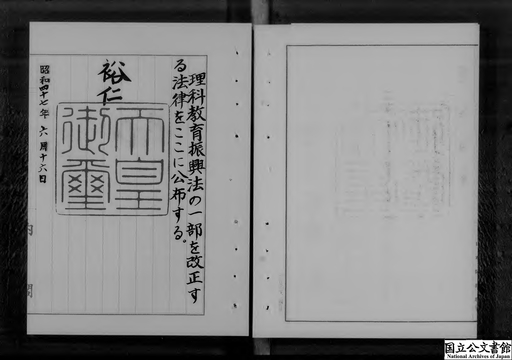 理科教育振興法の一部を改正す
る法律をここに公布する。
裕仁
天皇
御璽
昭和四十七年 六月十六日
内 閣
国立公文書館
National Archives of Japan